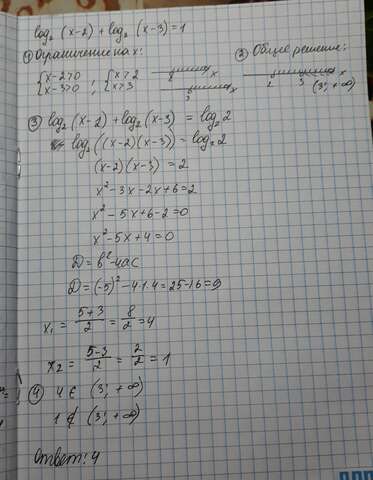 log₂ (x-2) + log₂ (x-3) = 1
① Ограничение на x:
{x-2>0 ; {x>2
{x-3>0 {x>3
2 x
3 x
② Общее решение:
2 3 x
(3; +∞)
③ log₂(x-2) + log₂(x-3) = log₂2
log₂((x-2)(x-3)) = log₂2
(x-2)(x-3) = 2
x² -3x -2x+6=2
x² -5x+6-2=0
x² -5x+4=0
D= b²-4ac
D= (-5)² -4·1·4 = 25-16=9
x₁ = 5+3/2 = 8/2 =4
x₂ = 5-3/2 = 2/2 =1
④ 4 ∈ (3; +∞)
1 ∉ (3; +∞)
Ответ: 4